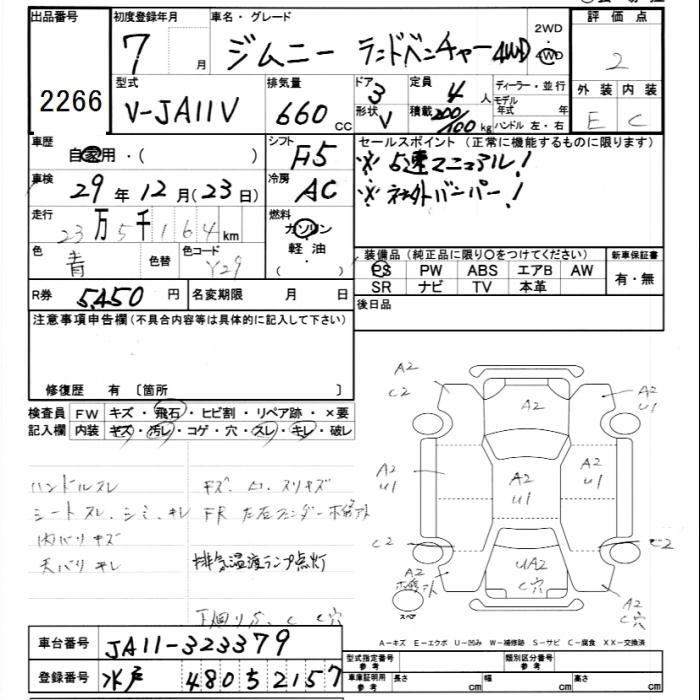 出品番号
2266
初度登録年月
7 月
車名・グレード
ジムニー ランドベンチャー4WD
2WD
4WD
評価点
2
外装 内装
E C
型式
V-JA11V
排気量
660 cc
ドア
3
形状
V
定員
4 人
積載
200/100 kg
ディーラー・並行
モデル年式 年
ハンドル 左・右
車歴
自家用・( )
シフト
F5
セールスポイント (正常に機能するものに限ります)
※ 5速マニュアル!
※ 社外バンパー!
車検
29年12月(23日)
冷房
AC
走行
23万5千164km
燃料
ガソリン
軽油
( )
色
青
色替
色コード
Y29
装備品 (純正品に限り○をつけてください)
新車保証書
PS PW ABS エアB AW
SR ナビ TV 本革
有・無
R券
5,450円
名変期限 月 日
後日品
注意事項申告欄 (不具合内容等は具体的に記入して下さい)
修復歴 有 〔箇所 〕
検査員記入欄
FW キズ・飛石・ヒビ割・リペア跡・×要
内装 キズ・汚レ・コゲ・穴・スレ・キレ・破レ
ハンドルスレ
シートスレ、シミ、キレ
内バリキズ
天バリキレ
FR 左右フェンダー補修アト
排気温度ランプ点灯
A2
C2
A2
A2
U1
A2
U1
A2
U1
A2
U1
C2
C2
A2
補修アト
スペア
UA2
C穴
A2
C穴
A-キズ E-エクボ U-凹み W-補修跡 S-サビ C-腐食 XX-交換済
車台番号
JA11-323379
登録番号
水戸 480 5 2157
型式指定番号
参考
類別区分番号
参考
車庫証明用
参考
長さ cm
幅 cm
高さ cm